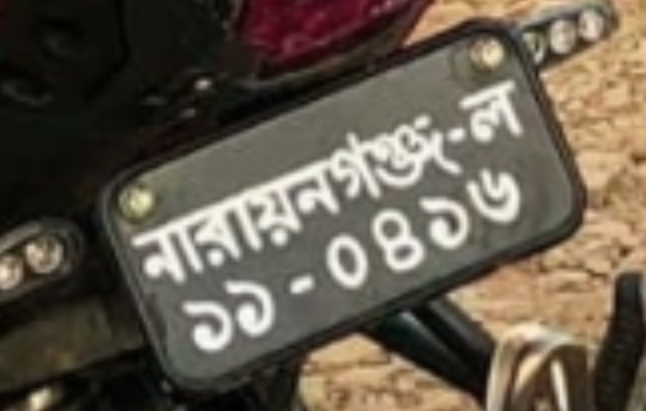 নারায়নগঞ্জ-ল
১১-০৪১৬